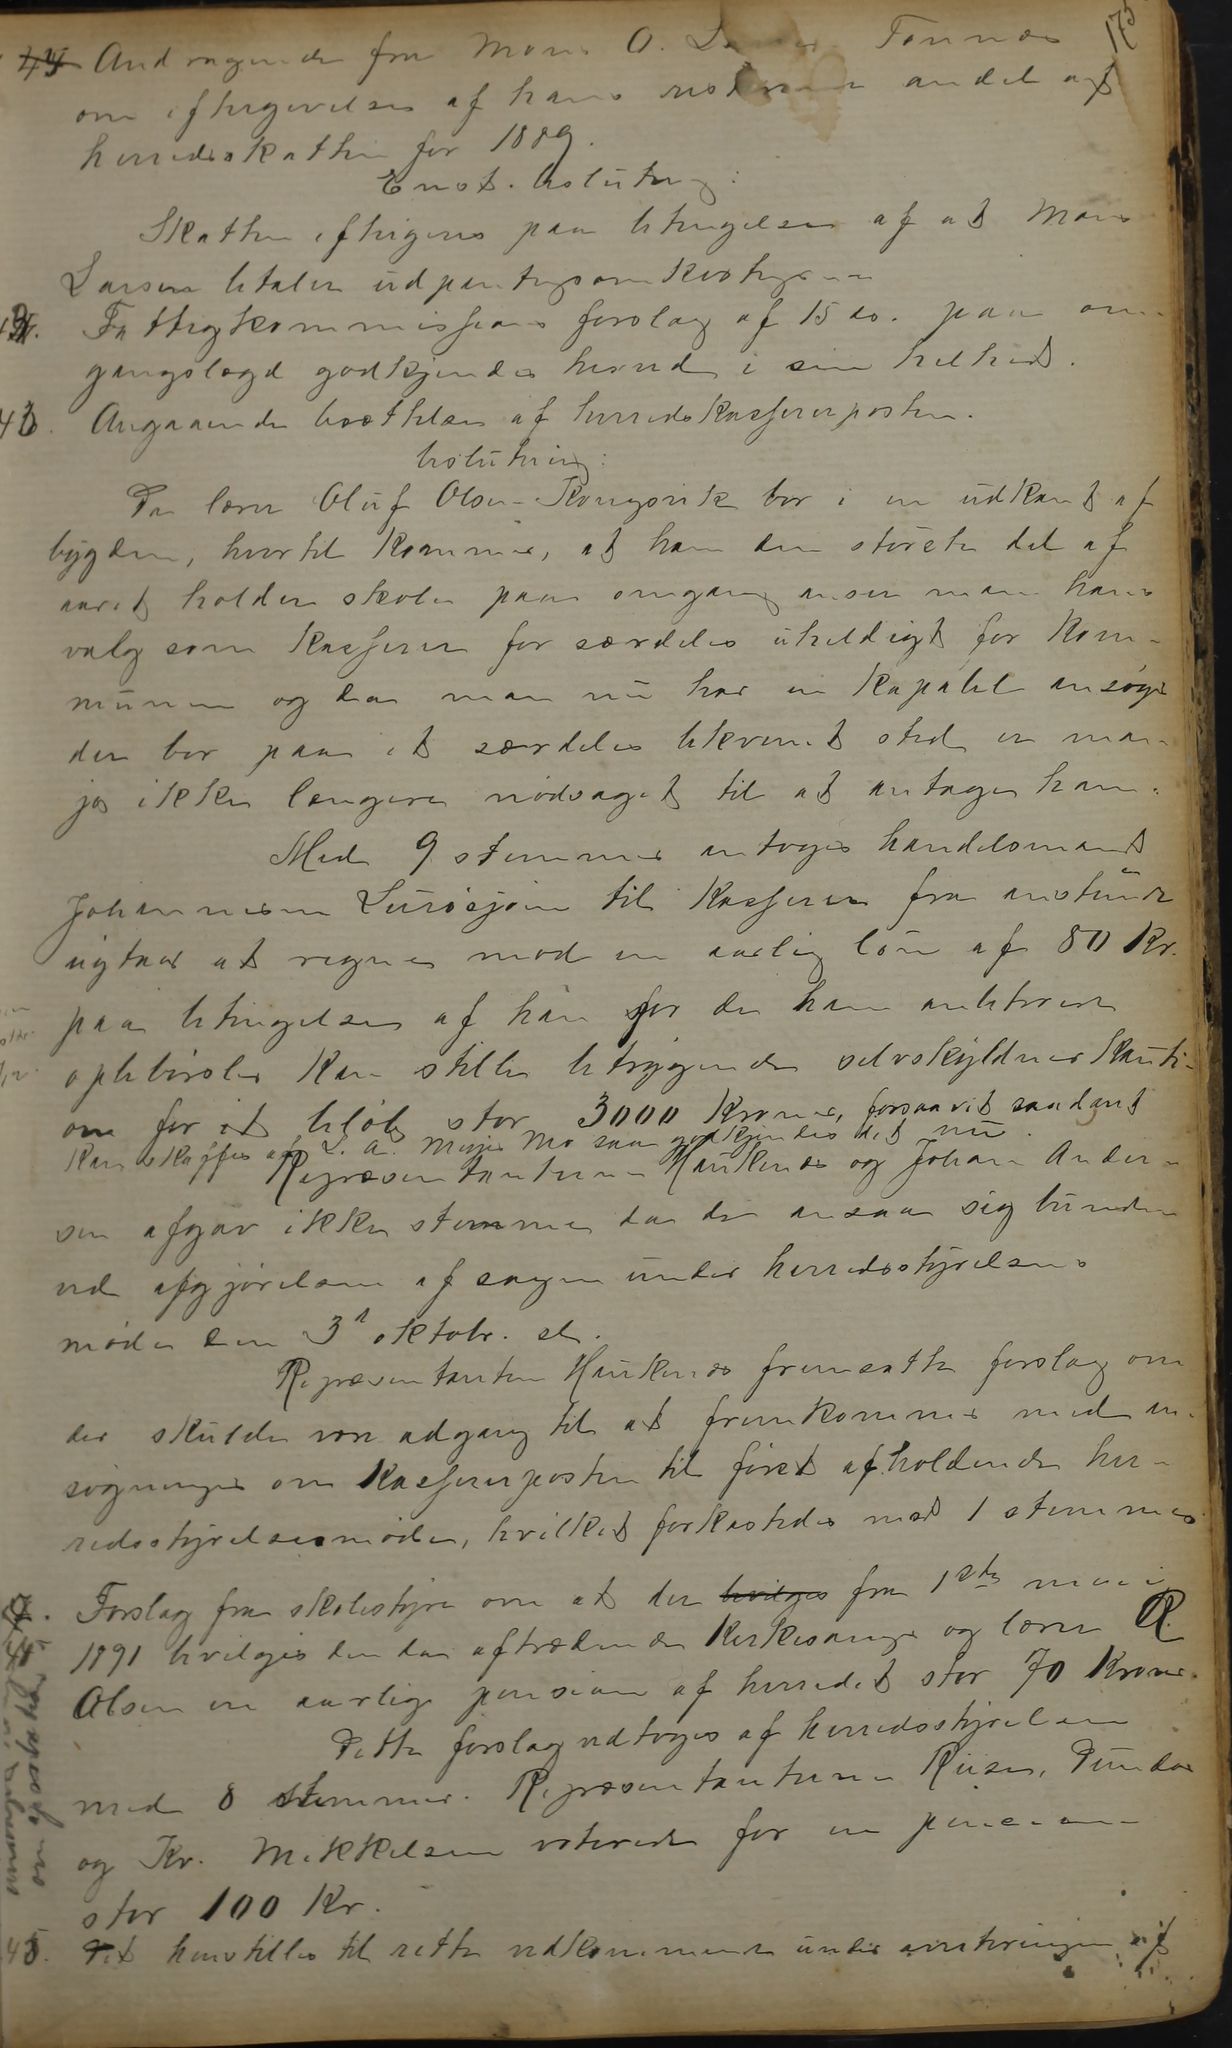 175
44 Andragende fra Mons O. Larsen Tonnes
om eftergivelse af hans resterende andel af
herredsskatten for 1889.
Enst. beslutning:
Skatten eftergives paa betingelse af at Mons
Larsen betaler udpantningsomkostningerne
Fattigkommissions forslag af 15 ds. paa om-
gangslægd godkjendes herved i sin helhed.
43. Angaaende besættelse af herredskassererposten.
beslutning:
Da lærer Oluf Olsen Kongsvik bor i en udkant af
bygden, hvortil kommer, at han den største del af
aaret holder skole paa omgang anser man hans
valg som kasserer for særdeles uheldigt for kom-
munen og da man nu har en kapabel ansøger
der bor paa et særdeles bekvemt sted er man
jo ikke længere nødsaget til at antage ham.
Med 9 stemmer antoges handelsmand
Johannesen Lurøsjøen til kasserer fra anstunde
nytaar at regne mod en aarlig løn af 80 Kr.
paa betingelse af han for de ham anbetroede
oppebørsler kan stille betryggende selvskyldnerkauti-
on for et beløb stor 3000 kroner, forsaavidt saadant
kan skaffes af L. A. Meyer Mo saa godkjendes det nu.
Repræsentanterne Haukenes og Johan Ander-
sen afgav ikke stemme da de ansaa sig bundne
ved afgjørelsen af sagen under herredsstyrelsens
møde den 3die oktobr. sl.
Repræsentanten Haukenes fremsatte forslag om
der skulde være adgang til at fremkomme med an-
søgninger om kassererposten til først afholdende her-
redsstyrelsesmøde, hvilket forkastedes mod 1 stemme
Forslag fra skolestyre om at der bevilges fra 1ste mai
1891 bevilges den da aftrædende kirkesanger og lærer R.
Olsen en aarlig pension af herredet stor 70 kroner.
Dette forslag vedtoges af herredsstyrelsen
med 8 stemmer. Repræsentanterne Riise, Dundas
og Kr. Mikkelsen voterede for en pension
stor 100 Kr.
45. Det henstilles til rette vedkommende under avertering af